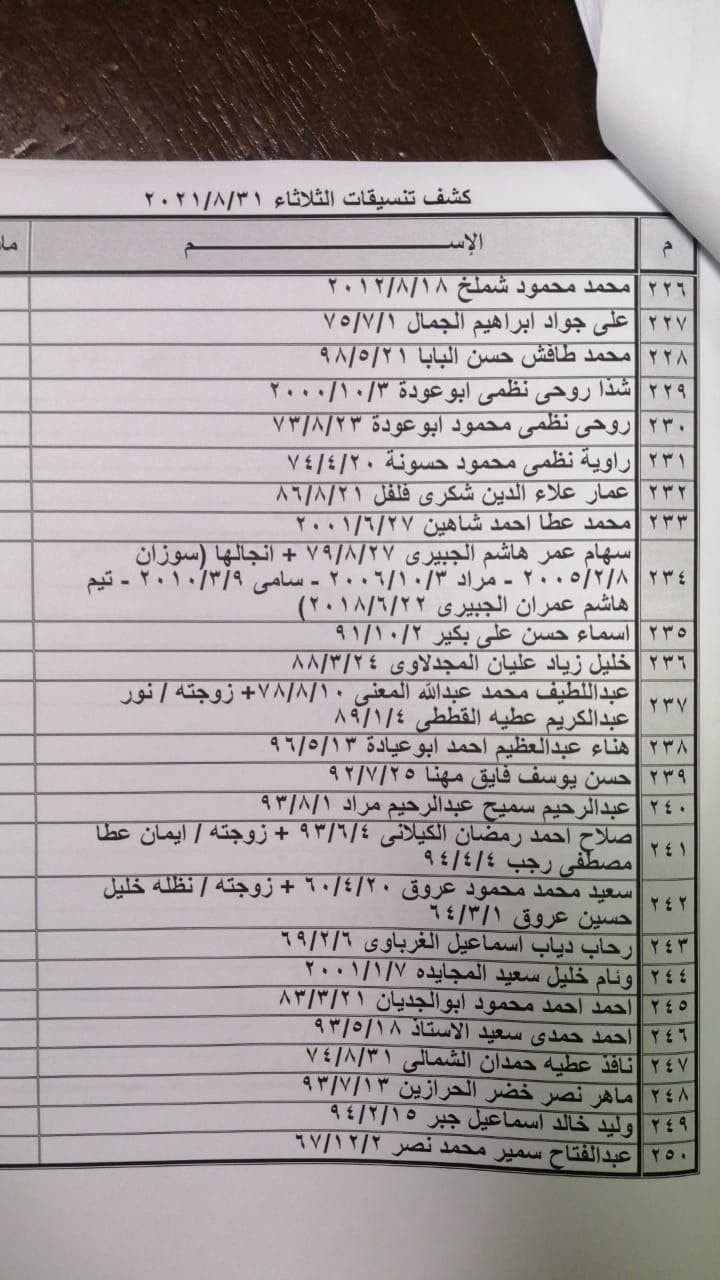 كشف تنسيقات الثلاثاء ٢٠٢١/٨/٣١
م الإســـــــــــم
٢٢٦ محمد محمود شملخ ٢٠١٢/٨/١٨
٢٢٧ على جواد ابراهيم الجمال ٧٥/٧/١
٢٢٨ محمد طافش حسن البابا ٩٨/٥/٢١
٢٢٩ شذا روحى نظمى ابوعودة ٢٠٠٠/١٠/٣
٢٣٠ روحى نظمى محمود ابوعودة ٧٣/٨/٢٣
٢٣١ راوية نظمى محمود حسونة ٧٤/٤/٢٠
٢٣٢ عمار علاء الدين شكرى فلفل ٨٦/٨/٢١
٢٣٣ محمد عطا احمد شاهين ٢٠٠١/٦/٢٧
٢٣٤ سهام عمر هاشم الجبيرى ٧٩/٨/٢٧ + انجالها (سوزان
٢٠٠٥/٢/٨ - مراد ٢٠٠٦/١٠/٣ - سامى ٢٠١٠/٣/٩ - تيم
هاشم عمران الجبيرى ٢٠١٨/٦/٢٢)
٢٣٥ اسماء حسن على بكير ٩١/١٠/٢
٢٣٦ خليل زياد عليان المجدلاوى ٨٨/٣/٢٤
٢٣٧ عبداللطيف محمد عبدالله المعنى ٧٨/٨/١٠+ زوجته / نور
عبدالكريم عطيه القططى ٨٩/١/٤
٢٣٨ هناء عبدالعظيم احمد ابوعيادة ٩٦/٥/١٣
٢٣٩ حسن يوسف فايق مهنا ٩٢/٧/٢٥
٢٤٠ عبدالرحيم سميح عبدالرحيم مراد ٩٣/٨/١
٢٤١ صلاح احمد رمضان الكيلانى ٩٣/٦/٤ + زوجته / ايمان عطا
مصطفى رجب ٩٤/٤/٤
٢٤٢ سعيد محمد محمود عروق ٦٠/٤/٢٠ + زوجته / نظله خليل
حسين عروق ٦٤/٣/١
٢٤٣ رحاب دياب اسماعيل الغرباوى ٦٩/٢/٦
٢٤٤ وئام خليل سعيد المجايده ٢٠٠١/١/٧
٢٤٥ احمد احمد محمود ابوالجديان ٨٣/٣/٢١
٢٤٦ احمد حمدى سعيد الاستاذ ٩٣/٥/١٨
٢٤٧ نافذ عطيه حمدان الشمالى ٧٤/٨/٣١
٢٤٨ ماهر نصر خضر الحرازين ٩٣/٧/١٣
٢٤٩ وليد خالد اسماعيل جبر ٩٤/٢/١٥
٢٥٠ عبدالفتاح سمير محمد نصر ٦٧/١٢/٢